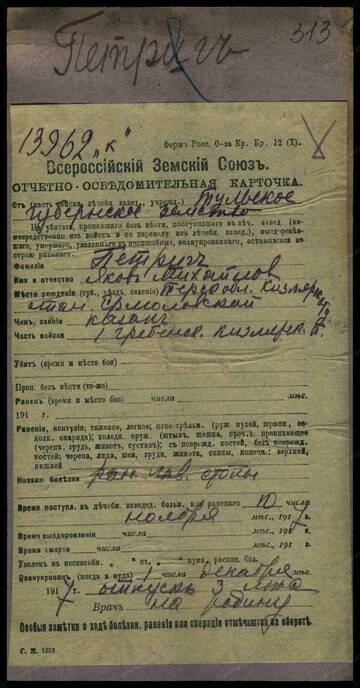 Петричъ
313
13962 „К"
Форм. Росс. О-ва Кр. Кр. 12 (X).
Всероссійскій Земскій Союзъ.
ОТЧЕТНО-ОСВѢДОМИТЕЛЬНАЯ КАРТОЧКА.
Отъ (часть войска, лѣчебн. завед., учрежд.) Тульское
Губернское Земство
На убитаго, пропавшаго безъ вѣсти, поступившаго въ лѣч. завед. (непосредственно
изъ войскъ и по переводу изъ лѣчебн. завед.), выздоровѣвшаго,
умершаго, уволеннаго въ неспособные, эвакуированнаго, оставшагося въ
строю раненаго.
Фамилія Петричъ
Имя и отчество Яковъ Михайлов
Мѣсто рожденія (губ., уѣзд., селеніе) Терс обл. Кизлярск
стан.
Чинъ, званіе казакъ
Часть войска 1 Гребенск. Кизлярск. п.
Убитъ (время и мѣсто боя)
Проп. безъ вѣсти (то-же)
Раненъ (время и мѣсто боя) числа мѣс.,
191 г.
Раненія, контузія; тяжелое, легкое; огнестрѣльн. (руж. пулей, шрапн., оскодк.
снаряда); холодн. оруж. (штыкъ, шашка, проч.), проникающая
(черепъ, грудь, животъ, суставъ); съ поврежд. костей, безъ поврежд.
костей; черепа, лица, шеи, груди, живота, спины, конечн.: верхней,
нижней
Какая болѣзнь ран. лѣв. стопы
Время поступл. въ лѣчебн. завед. больн. или раненаго 10 числа
ноября мѣс., 1917 г.
Время выздоровленія мѣс., 191 г.
Время смерти мѣс., 191 г.
Уволенъ въ неспособн. „ ст. пунк. распис. бол.
Эвакуированъ (когда и куда) 1 числа декабря мѣс.
1917 г. отпускъ 3 м-ца
Врачъ на родину
Особыя замѣтки о ходѣ болѣзни, раненія или операція отмѣчаются на оборотѣ.